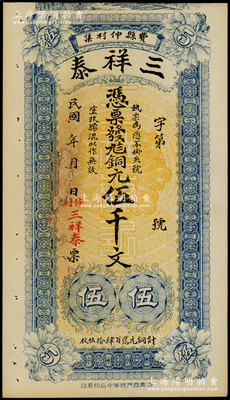 費縣仲村集
三祥泰
字第 號
憑票發兌銅元伍千文
執票為憑不掛失號
塗改膺混以作無效
民國 年 月 日
仲村三祥泰票
伍 伍
計銅元貳百肆拾伍枚
5